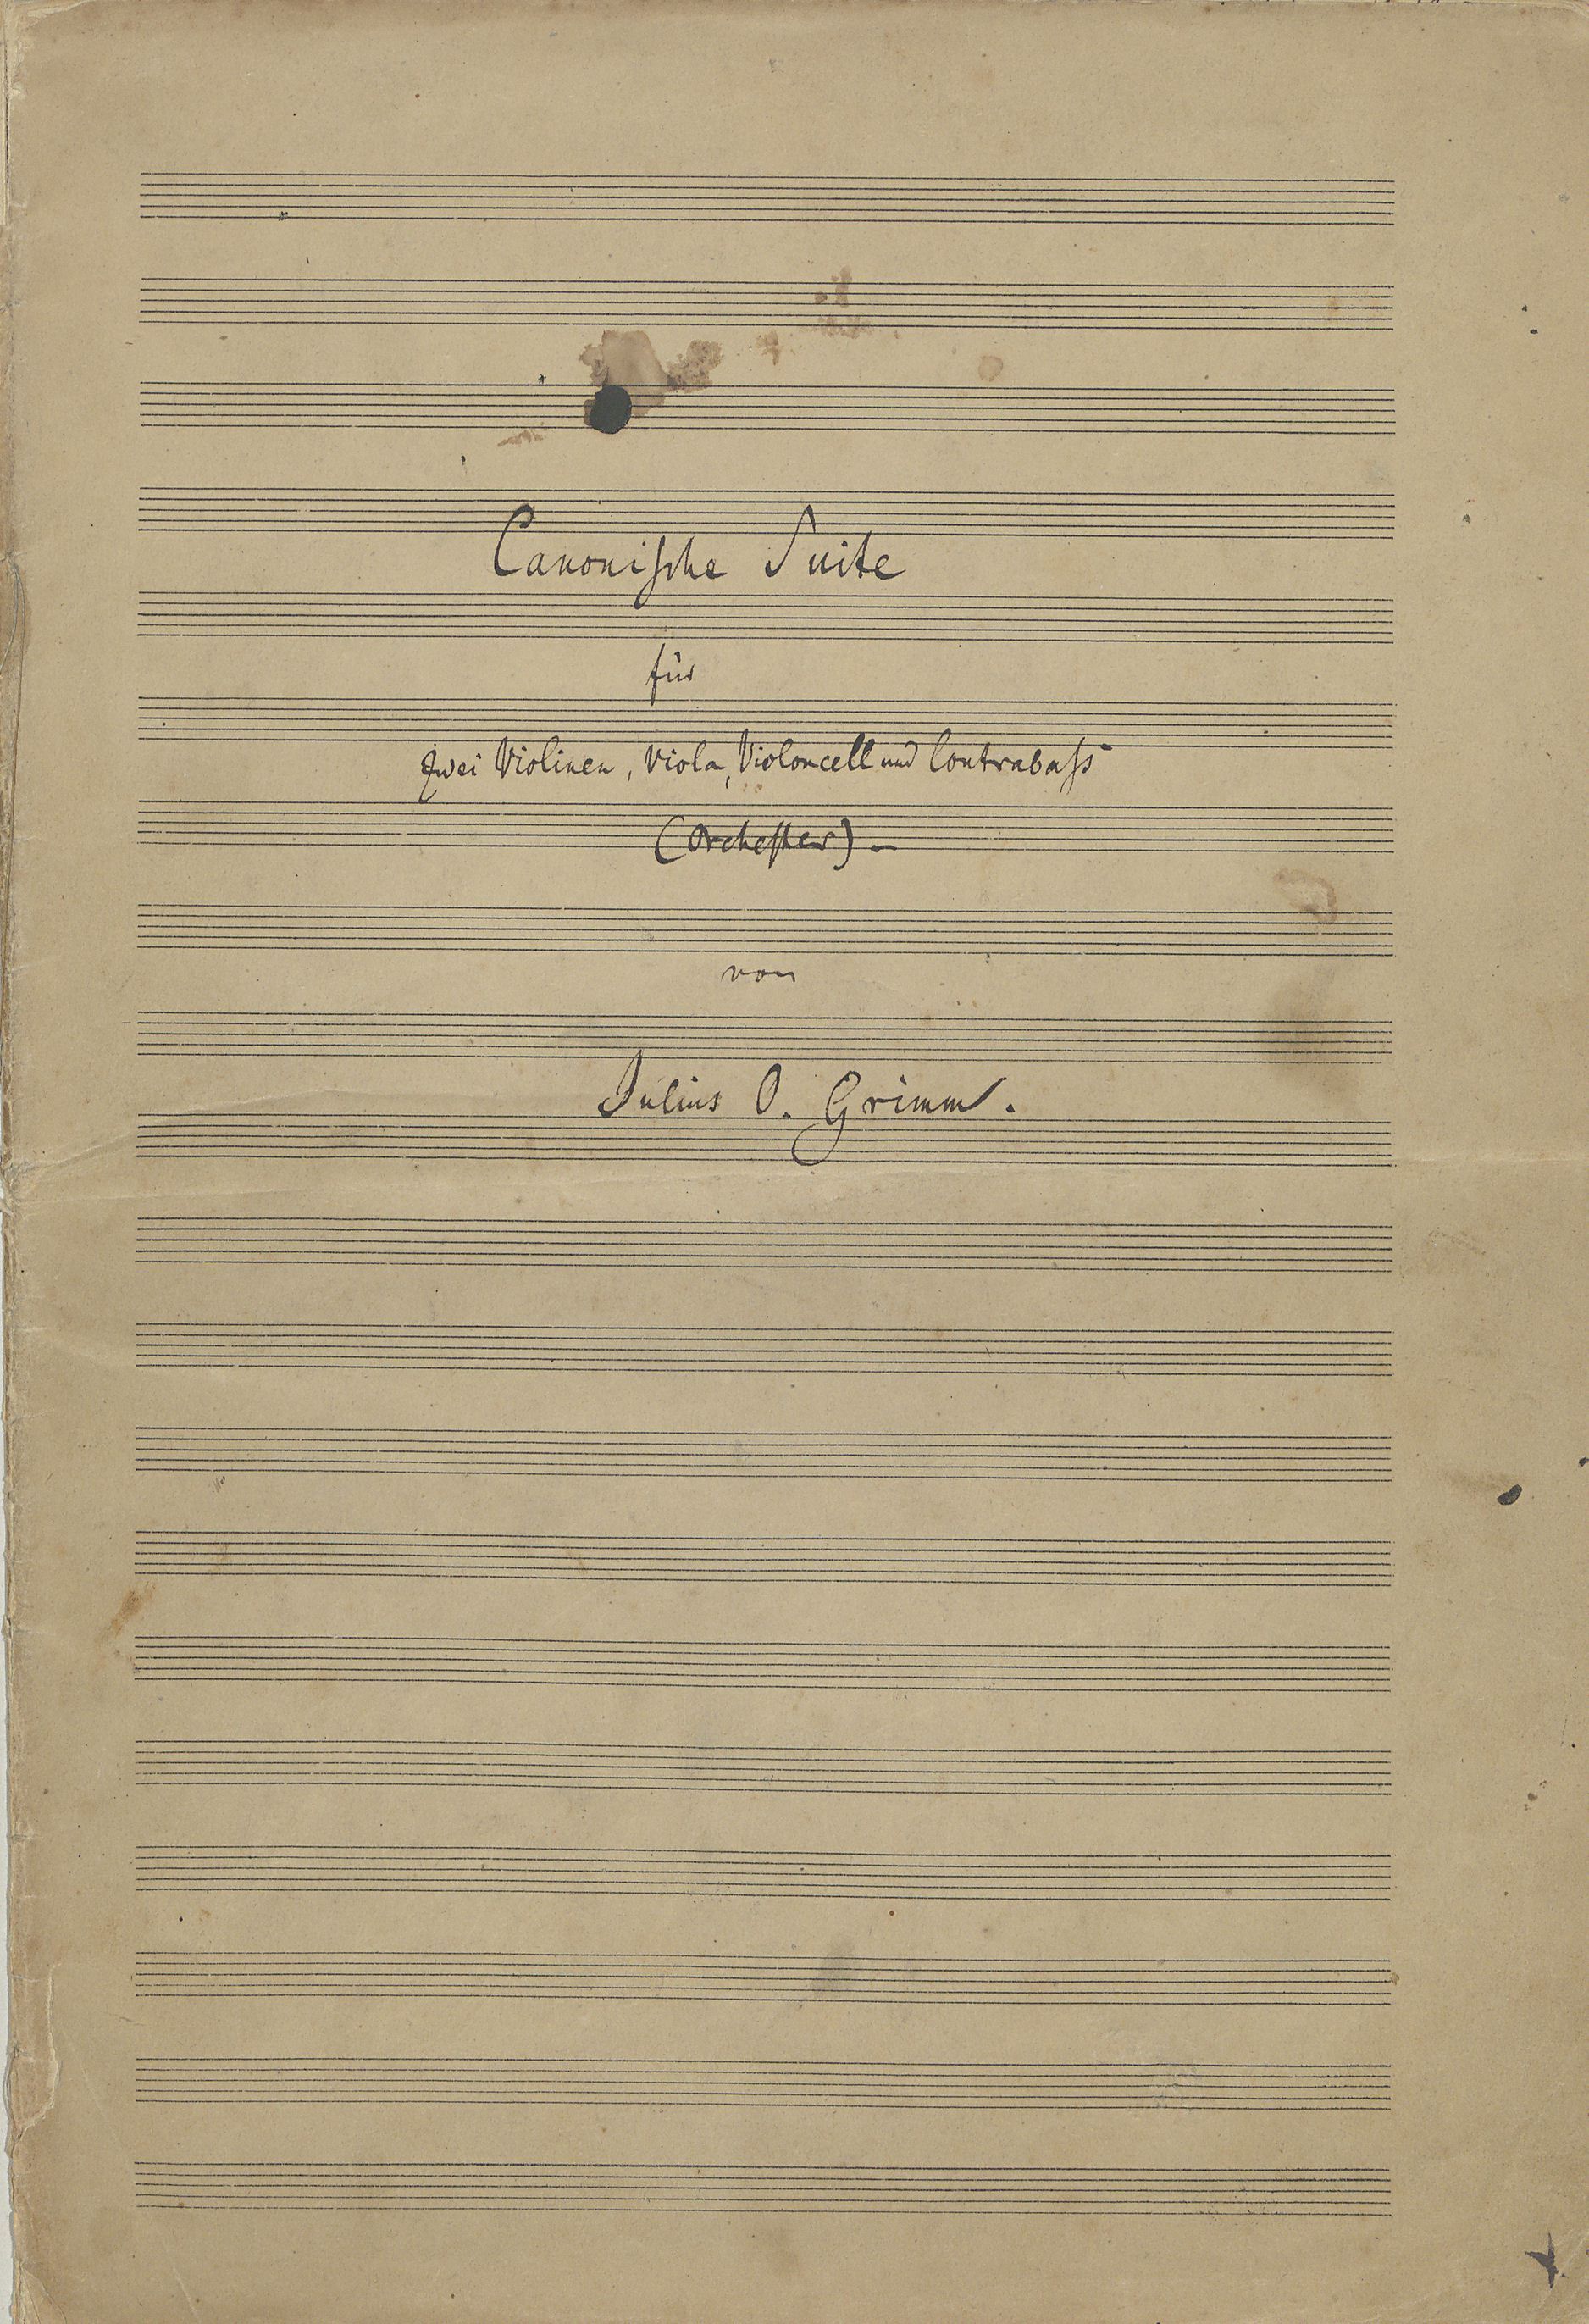 Canonische Suite
für
zwei Violinen, Viola, Violoncell und Contrabaß
(Orchester) –
von
Julius O. Grimm.